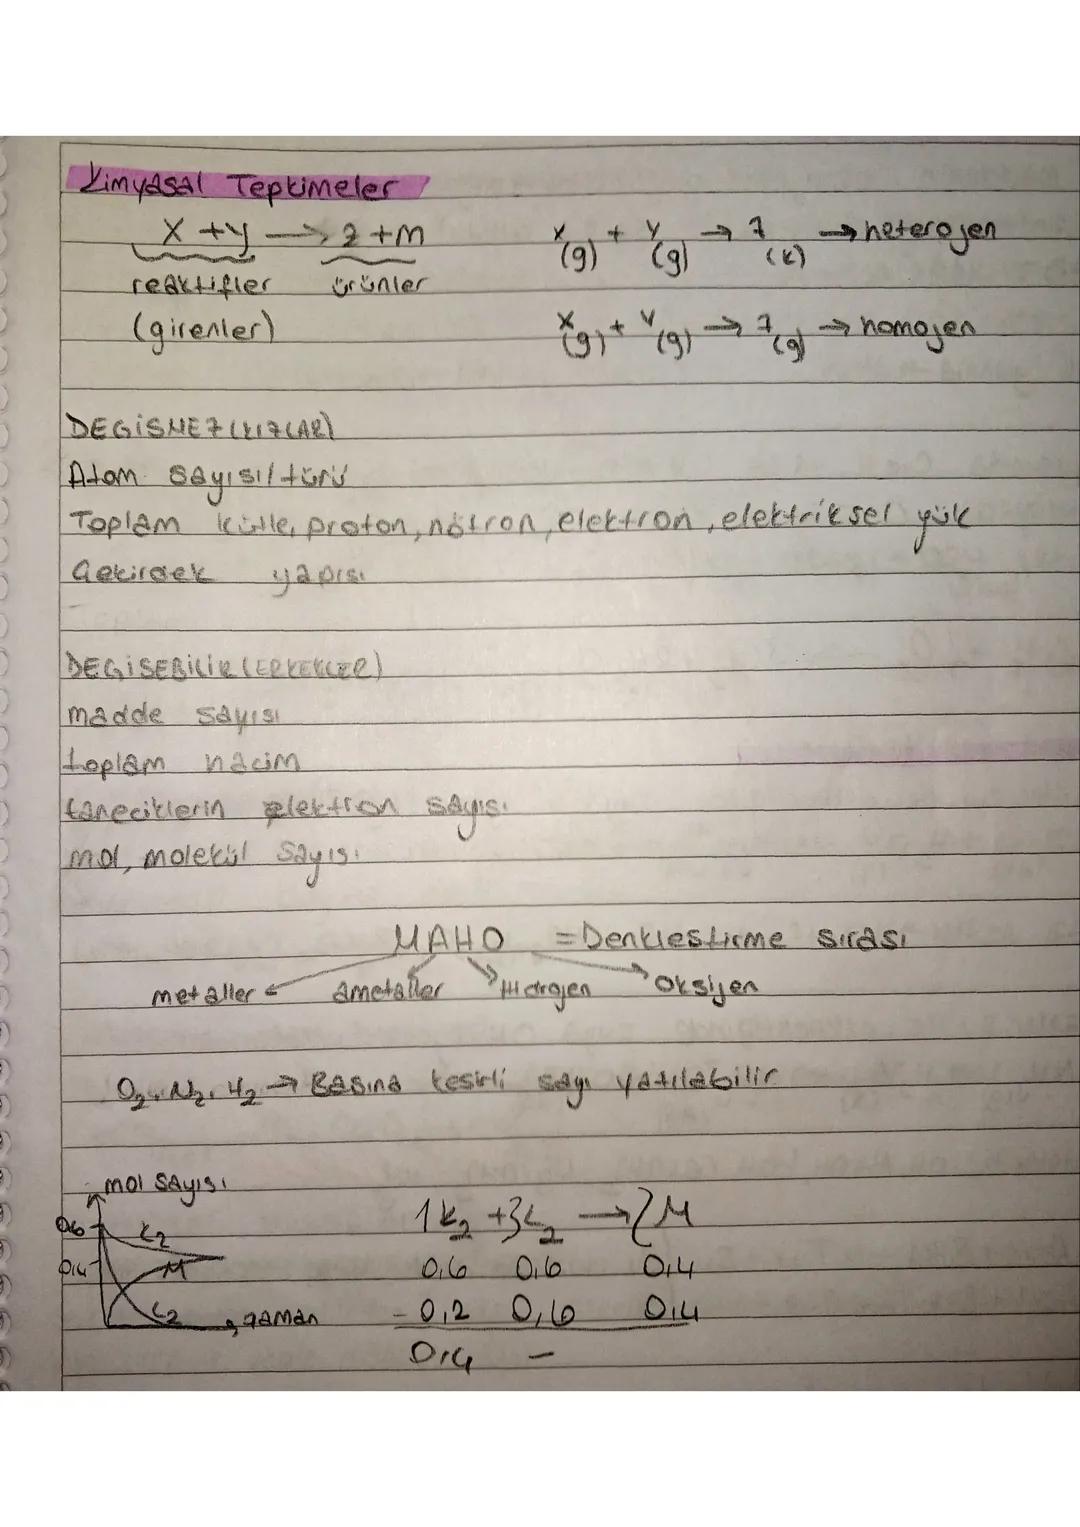 Kimyasal Tepkimeler
X + y → z + m
reaktifler ürünler
(girenler)
X(g) + Y(g) → z(k) → heterojen
X(g) + Y(g) → z(g) → homojen
DEĞİŞMEZ (KIZLAR)
Atom sayısı/türü
Toplam kütle, proton, nötron, elektron, elektriksel yük
Çekirdek yapısı
DEGİSEBİLİR (ERKEKLER)
madde sayısı
toplam hacim
taneciklerin elektron sayısı
mol, molekül sayısı
MAHO = Denkleştirme sırası
metaller ametaller Hidrojen Oksijen
O2, N2, H2 → Başına kesirli sayı yazılabilir
mol sayısı
0,6 K2
0,4 M
L2 zaman
1K2 + 3L2 → 2M
0,6 0,6 0,4
- 0,2 0,6 0,4
0,4 -